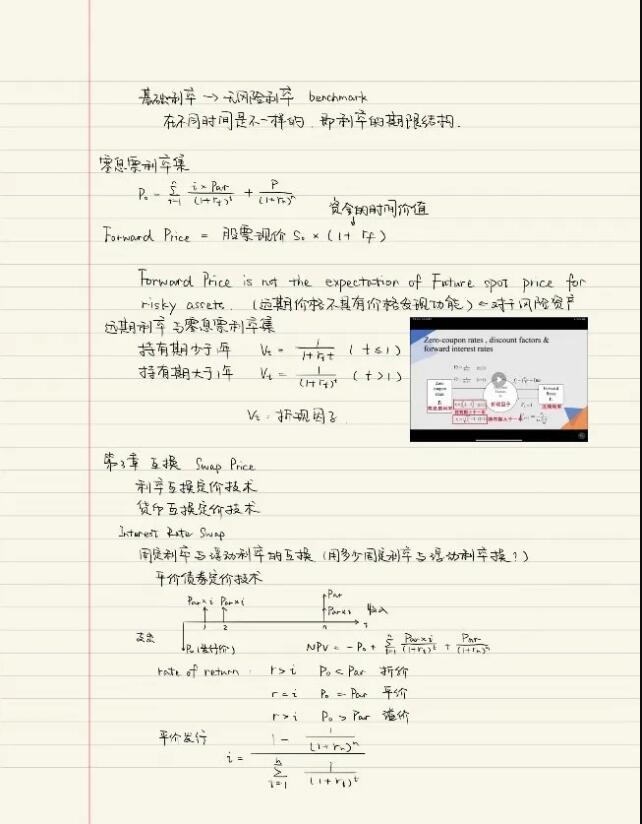 基础利率 → 无风险利率 benchmark
在不同时间是不一样的，即利率的期限结构.
零息票利率集
P₀ = Σⁿᵢ₌₁ i×Par/(1+rₜ)ᵗ + P/(1+rₙ)ⁿ
资金的时间价值
Forward Price = 股票现价 S₀ × (1 + rf)
Forward Price is not the expectation of Future spot price for
risky assets. (远期价格不具有价格发现功能) ← 对于风险资产
远期利率与零息票利率集
持有期少于1年 Vₜ = 1/(1+rₜt) (t≤1)
持有期大于1年 Vₜ = 1/(1+rₜ)ᵗ (t>1)
Vₜ: 折现因子
Zero-coupon rates, discount factors &
forward interest rates
Zero
coupon
折现因子
Forward
第3章 互换 Swap Price
利率互换定价技术
货币互换定价技术
Interest Rate Swap
固定利率与浮动利率的互换 (用多少固定利率与浮动利率换?)
平价债券定价技术
Par
Par×i Par×i Par×i 收入
1 2 n t
支出
P₀ (发行价) NPV = -P₀ + Σⁿₜ₌₁ Par×i/(1+rₜ)ᵗ + Par/(1+rₙ)ⁿ
rate of return: r>i P₀ < Par 折价
r=i P₀ = Par 平价
r>i P₀ > Par 溢价
平价发行 i = (1 - 1/(1+rₙ)ⁿ) / (Σⁿᵢ₌₁ 1/(1+rₜ)ᵗ)